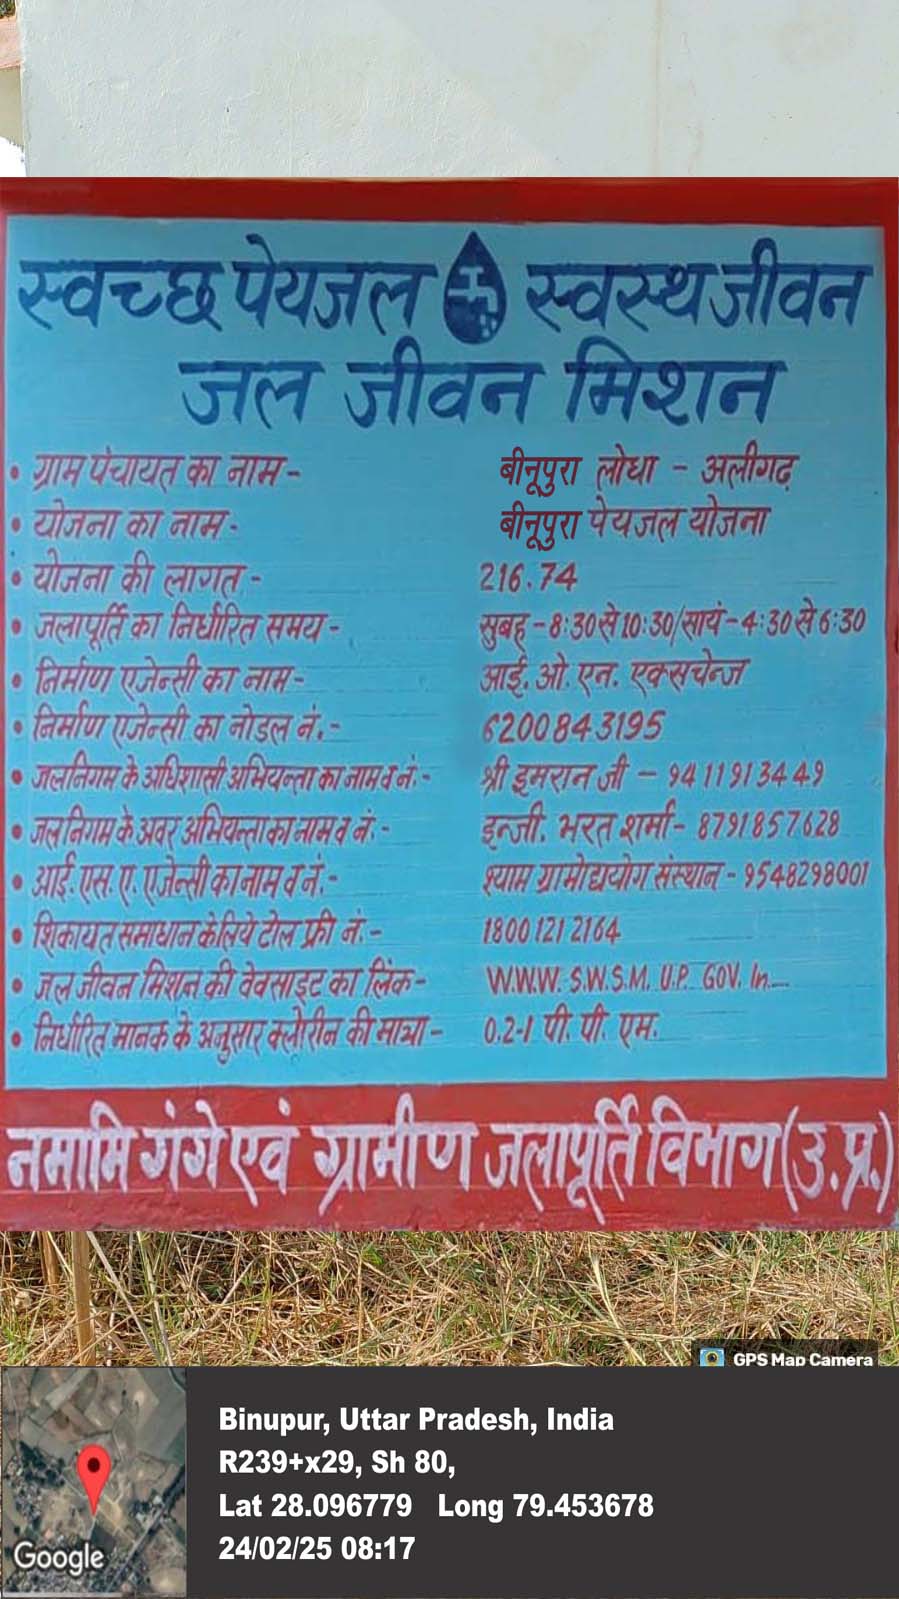 स्वच्छ पेयजल स्वस्थ जीवन
जल जीवन मिशन
• ग्राम पंचायत का नाम - बीनूपुरा लोधा - अलीगढ़
• योजना का नाम - बीनूपुरा पेयजल योजना
• योजना की लागत - 216.74
• जलापूर्ति का निर्धारित समय - सुबह - 8:30 से 10:30/सायं - 4:30 से 6:30
• निर्माण एजेन्सी का नाम - आई. ओ. एन. एक्सचेन्ज
• निर्माण एजेन्सी का नोडल नं. - 6200843195
• जलनिगम के अधिशासी अभियन्ता का नाम व नं. - श्री इमरान जी - 9411913449
• जलनिगम के अवर अभियन्ता का नाम व नं. - इन्जी. भरत शर्मा - 8791857628
• आई. एस. ए. एजेन्सी का नाम व नं. - श्याम ग्रामोद्ययोग संस्थान - 9548298001
• शिकायत समाधान के लिये टोल फ्री नं. - 1800 121 2164
• जल जीवन मिशन की वेवसाइट का लिंक - W.W.W. S.W.S.M. U.P. GOV. In.
• निर्धारित मानक के अनुसार क्लोरीन की मात्रा - 0.2-1 पी. पी. एम.
नमामि गंगे एवं ग्रामीण जलापूर्ति विभाग (उ.प्र.)
GPS Map Camera
Binupur, Uttar Pradesh, India
R239+x29, Sh 80,
Lat 28.096779 Long 79.453678
24/02/25 08:17
Google